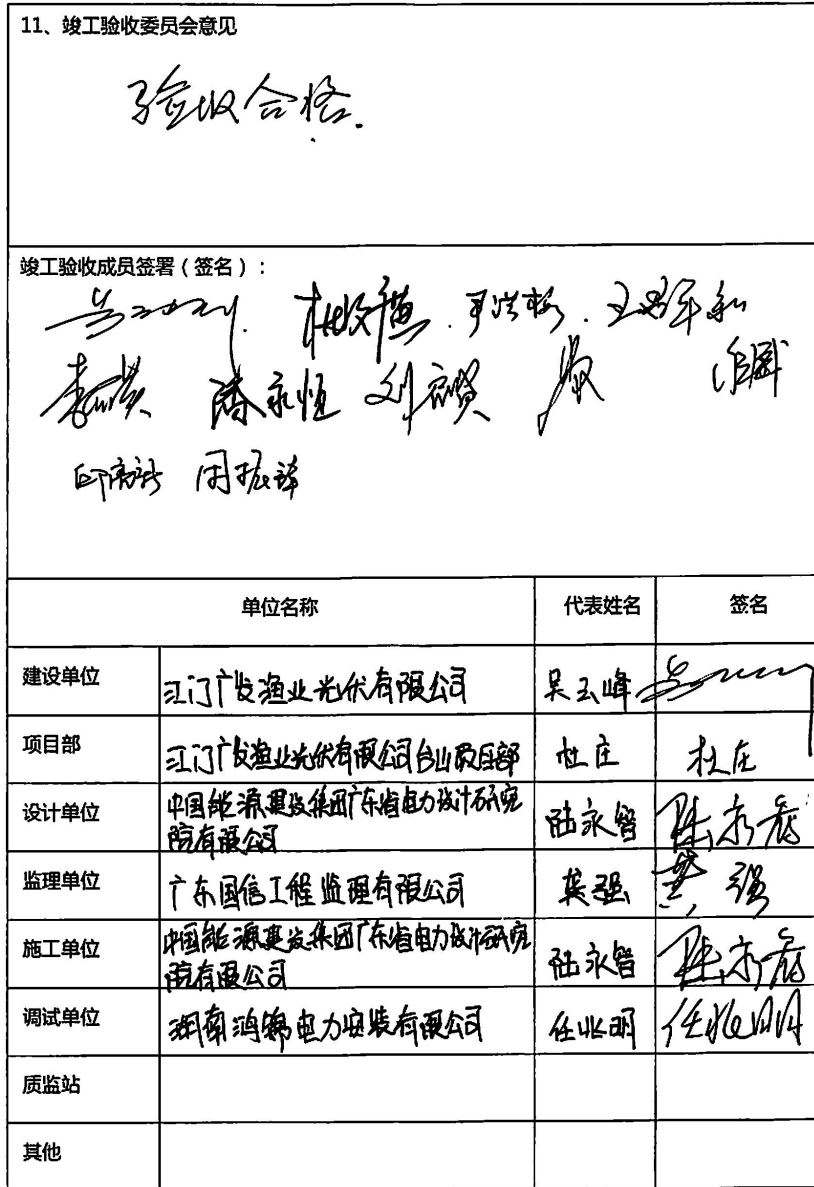 11、竣工验收委员会意见
验收合格.
竣工验收成员签署（签名）：
潘永恒
周振锋
单位名称 代表姓名 签名
建设单位 江门广发渔业光伏有限公司 吴玉峰
项目部 江门广发渔业光伏有限公司台山项目部 杜庄 杜庄
设计单位 中国能源建设集团广东省电力设计研究
院有限公司 陆永智 陆永智
监理单位 广东国信工程监理有限公司 黄强 黄强
施工单位 中国能源建设集团广东省电力设计研究
院有限公司 陆永智 陆永智
调试单位 湖南鸿锦电力安装有限公司 任兆明 任兆明
质监站
其他